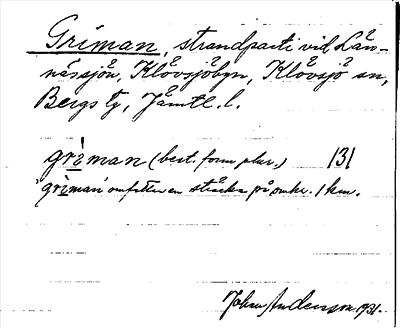 Griman, strandparti vid Lån-
nässjön, Klövsjöbyn, Klövsjö sn,
Bergs tg, Jämtl. l.
griman (best. form plur.) 131
'griman' omfattar en sträcka på omkr. 1 km.
Johan Anderson 1931.